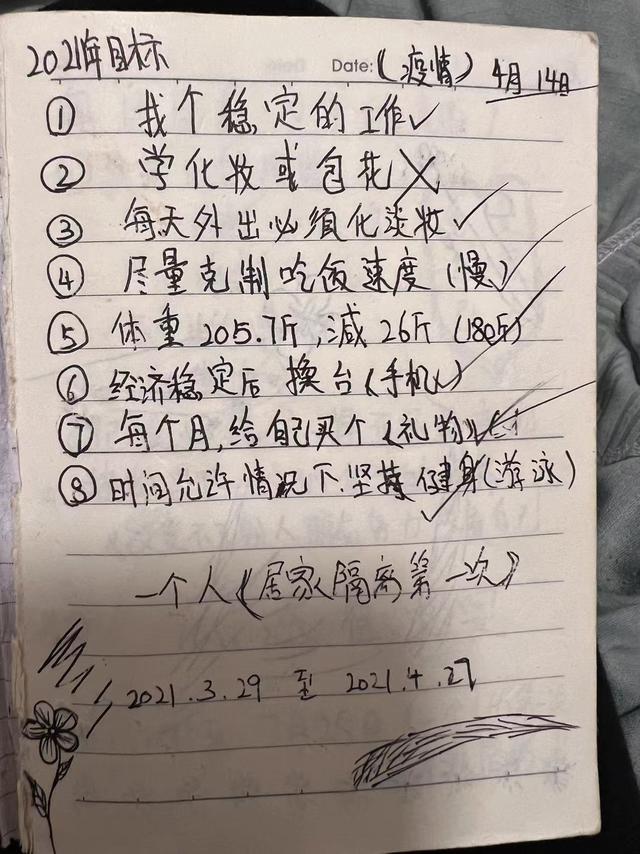 2021年目标
Date: (疫情) 4月14日
① 找个稳定的工作✓
② 学化妆或包花✗
③ 每天外出必须化淡妆✓
④ 尽量克制吃饭速度(慢)✓
⑤ 体重205.7斤,减26斤(180斤)
⑥ 经济稳定后 换台(手机)✓
⑦ 每个月,给自己买个《礼物》✓
⑧ 时间允许情况下.坚持健身(游泳)✓
一个人《居家隔离第一次》
2021.3.29 至 2021.4.27